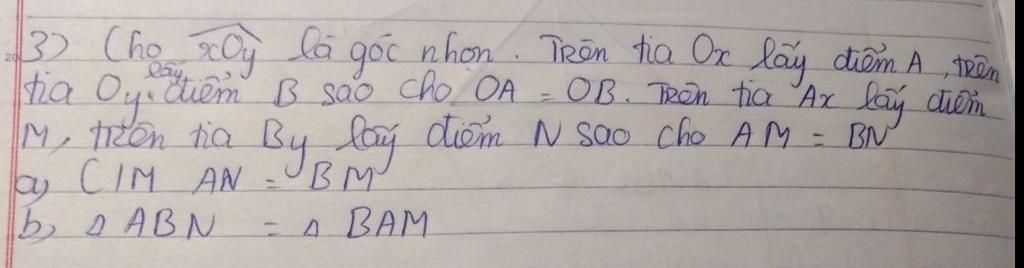 3) Cho xOy là góc nhọn. Trên tia Ox lấy điểm A, trên
tia Oy lấy điểm B sao cho OA = OB. Trên tia Ax lấy điểm
M, trên tia By lấy điểm N sao cho AM = BN
a, C/M AN = BM
b, Δ ABN = Δ BAM